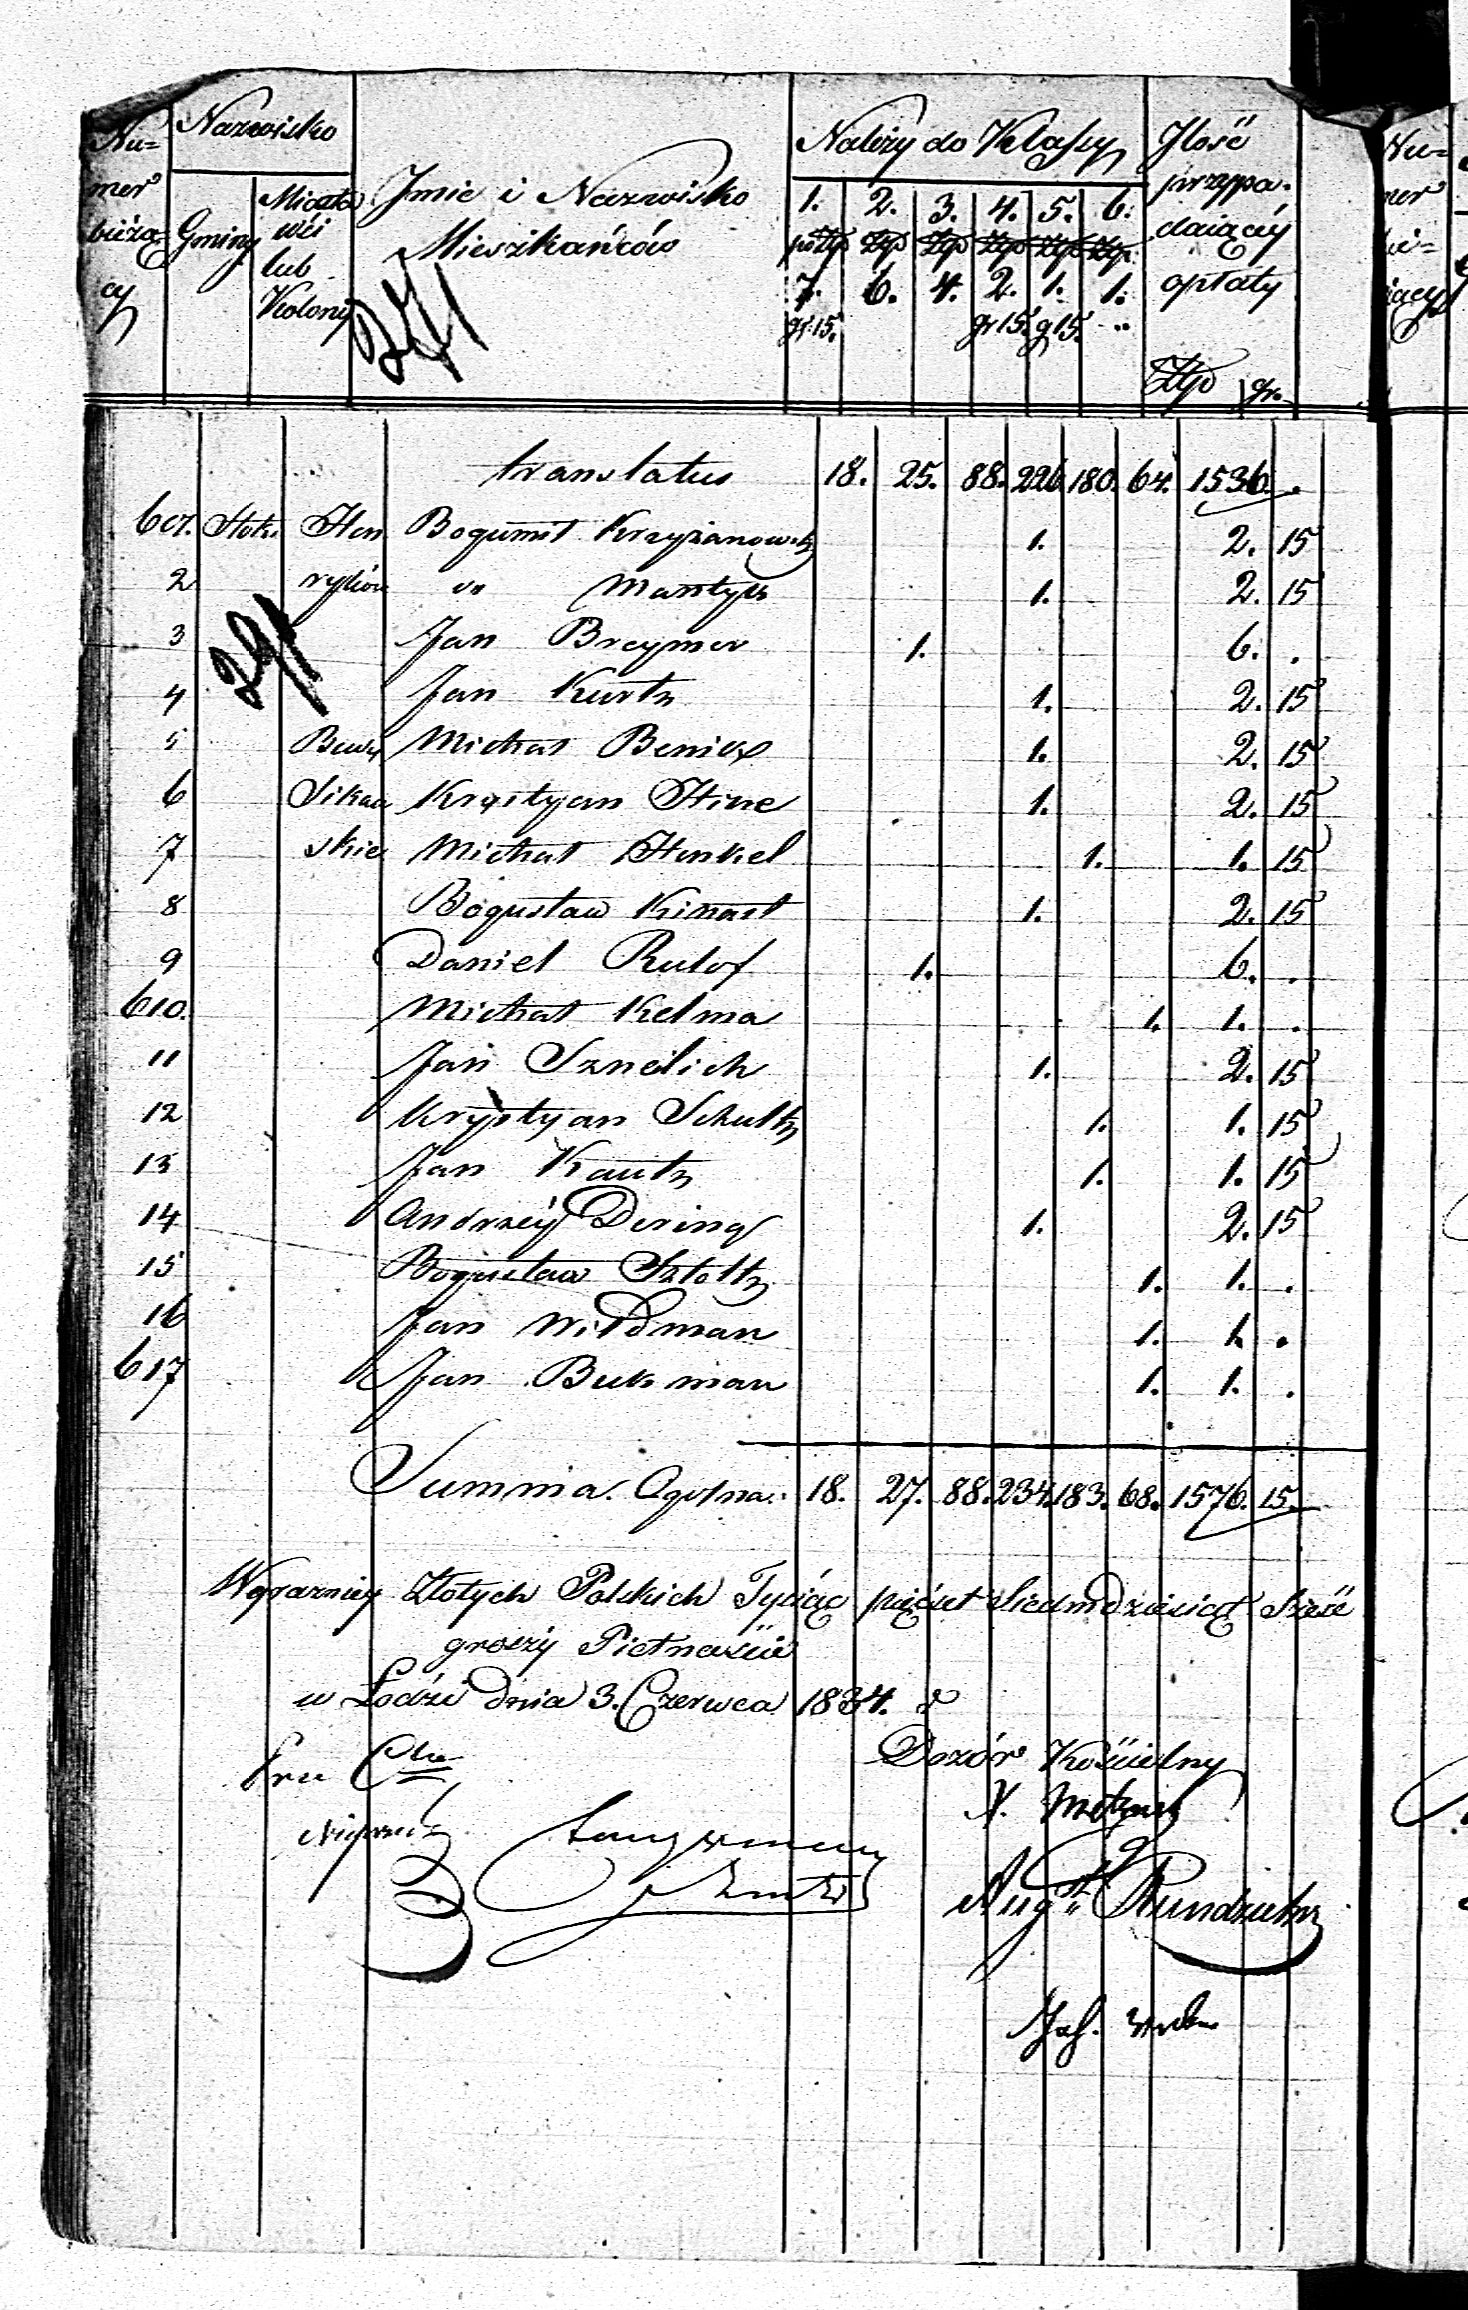 Nu= Nazwisko Imie i Nazwisko Mieszkańców Należy do Klassy Ilość
mer przypa=
bieżą= Gminy Miasta 1. 2. 3. 4. 5. 6. daiącéy
cy wsi po Złp Złp Złp Złp Złp Złp opłaty
lub 7. 6. 4. 2. 1. 1.
Kolony gr 15. gr 15. g 15. „
Złp gr.
291
translatus 18. 25. 88. 226. 180. 64. 1536. .
601. Stoki Hen Bogumił Krzyżanowski 1. 2. 15
2 ryków „ Mantyk 1. 2. 15
291
3 Jan Breymer 1. 6. .
4 Jan Kurtz 1. 2. 15
5 Michał Benike 1. 2. 15
6 Sikaw Krystyan Hine 1. 2. 15
7 skie Michał Henkel 1. 1. 15
8 Bogusław Kinast 1. 2. 15
9 Daniel Rulof 1. 6. .
610. Michał Kelma 1. 1. .
11 Jan Sznelich 1. 2. 15
12 Krystyan Schultz 1. 1. 15
13 Jan Kautz 1. 1. 15
14 Andrzéy Dering 1. 2. 15
15 Bogusław Sztoltz 1. 1. .
16 Jan Wildman 1. 1. .
617 Jan Bukman 1. 1. .
Summa Ogolna 18. 27. 88. 234. 183. 68. 1576. 15.
Wyrazniey Złotych Polskich Tysiąc pięćset Siedmdziesiąt Sześć
groszy Pietnaście
w Łodzi dnia 3. Czerwca 1834. r
Dozór Kościelny
Aug